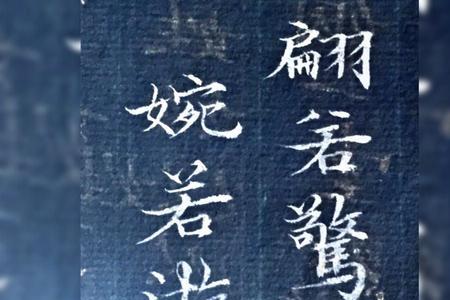 翩若驚
婉若